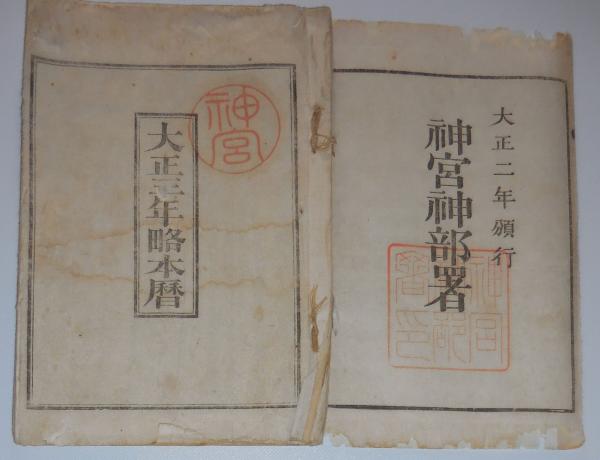 大正二年頒行
神宮神部署
神宮神部署印
神宮
大正三年略本暦